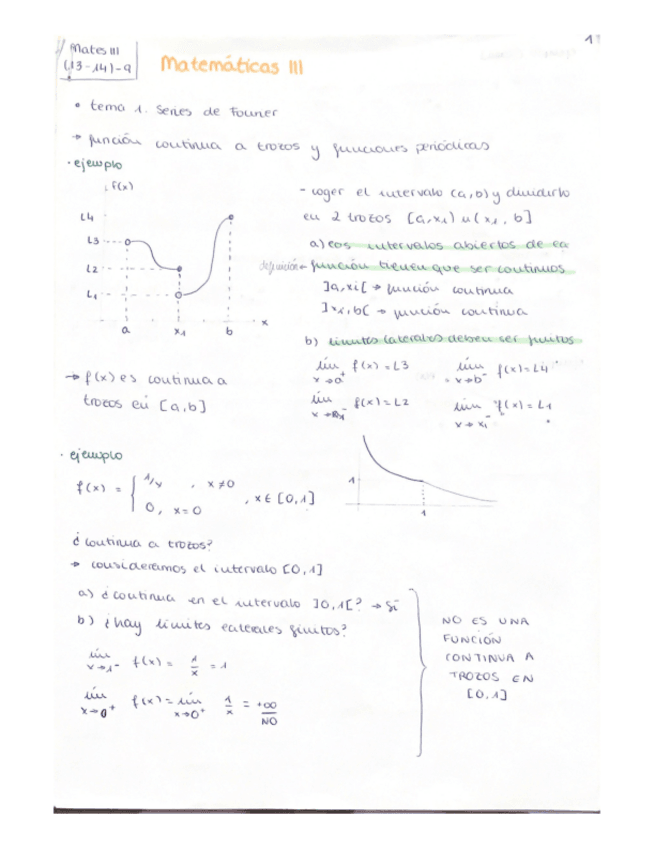 1
Mates III
(13-14)-9
Matemáticas III
• tema 1. Series de Fourier
→ función continua a trozos y funciones periódicas
· ejemplo
f(x)
L4
L3
L2
L1
a x1 b x
- coger el intervalo (a,b) y dividirlo
en 2 trozos [a,x1) u (x1, b]
a) los intervalos abiertos de la
definición ← función tienen que ser continuos
]a,x1[ → función continua
]x1,b[ → función continua
b) limites laterales deben ser finitos
lim f(x) = L3
x→a⁺
lim f(x) = L4
x→b⁻
lim f(x) = L2
x→x1⁻
lim f(x) = L1
x→x1⁻
→ f(x) es continua a
trozos en [a,b]
· ejemplo
f(x) = { 1/x , x≠0
0, x=0
, x ∈ [0,1]
1
1
¿continua a trozos?
→ consideramos el intervalo [0,1]
a) ¿continua en el intervalo ]0,1[? → Sí
b) ¿hay limites laterales finitos?
lim f(x) = 1/x = 1
x→1⁻
lim f(x) = lim 1/x = +∞
x→0⁺ x→0⁺ NO
NO ES UNA
FUNCIÓN
CONTINUA A
TROZOS EN
[0,1]